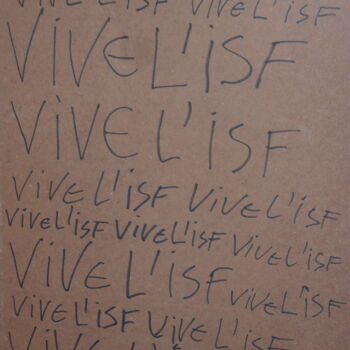 VIVE L'ISF VIVE L'ISF
VIVE L'ISF
VIVE L'ISF
VIVE L'ISF VIVE L'ISF
VIVE L'ISF VIVE L'ISF VIVE L'ISF
VIVE L'ISF VIVE L'ISF
VIVE L'ISF VIVE L'ISF